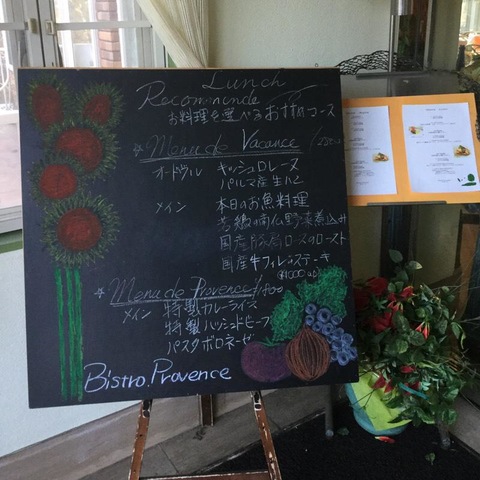 Lunch
Recommende
お料理を選べるおすすめコース
☆ Menu de Vacance
オードヴル キッシュロレーヌ
パルマ産生ハム
メイン 本日のお魚料理
若鶏の南仏野菜煮込み
国産豚肩ロースのロースト
国産牛フィレステーキ
☆ Menu de Provence
メイン 特製カレーライス
特製ハッシュドビーフ
パスタボロネーゼ
Bistro Provence